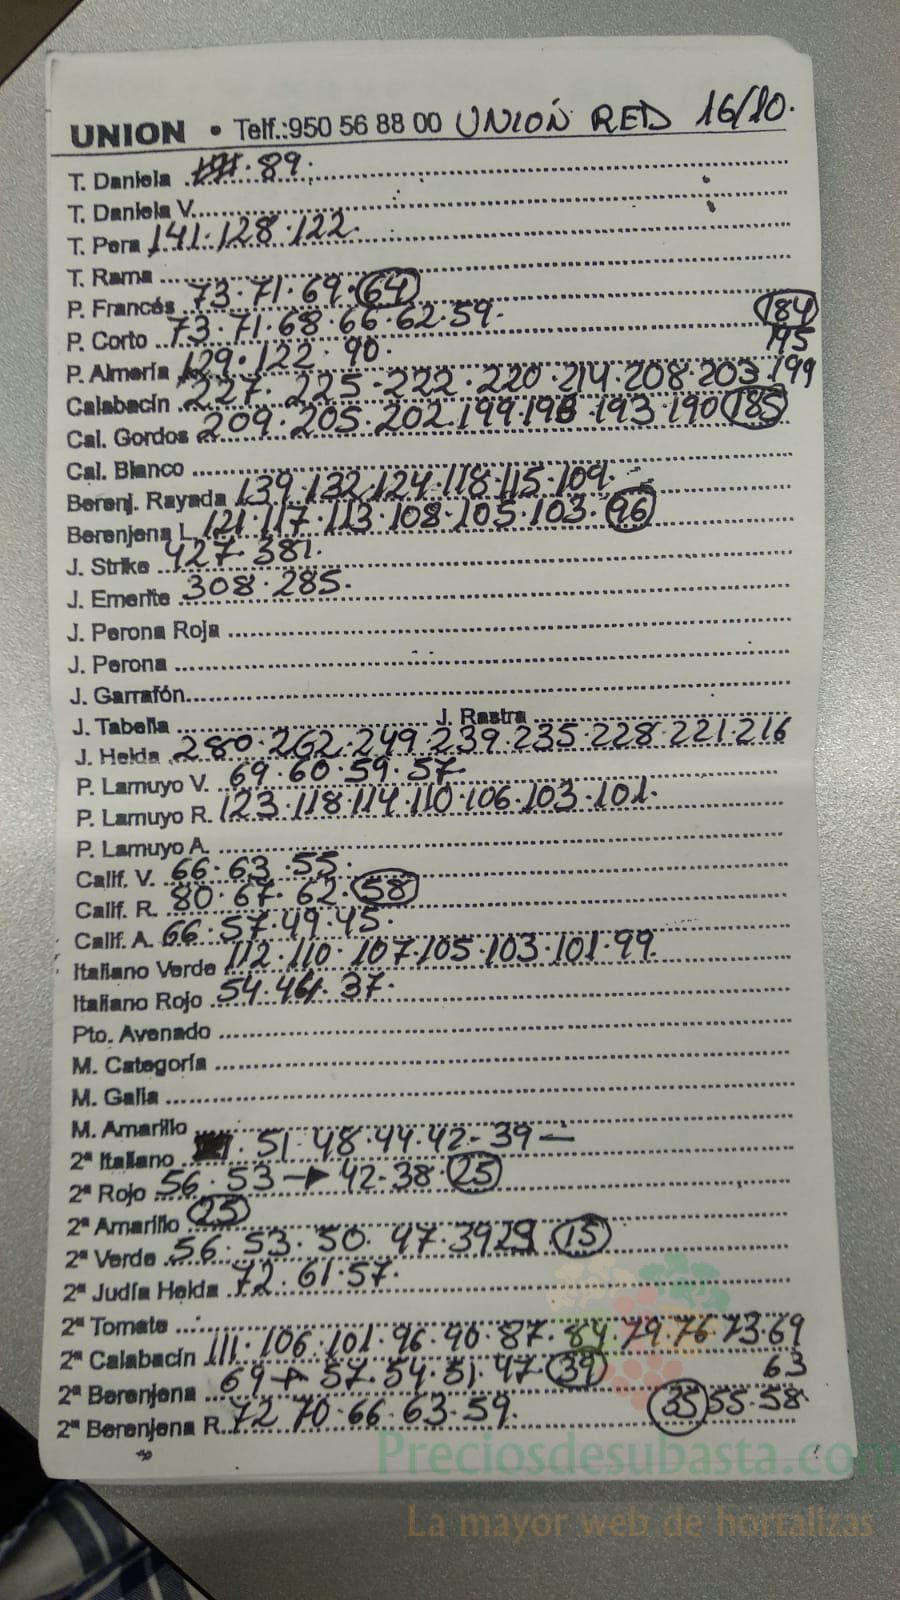 UNION • Telf.:950 56 88 00 UNIÓN RED 16/10.
T. Daniela 89.
T. Daniela V.
T. Pera 141.128.122.
T. Rama
P. Francés 73.71.69.64
P. Corto 73.71.68.66.62.59. 184
P. Almería 129.122.90. 195
Calabacín 227.225-222.220.214.208.203.199
Cal. Gordos 209.205.202.199.196.193.190 185
Cal. Blanco
Berenj. Rayada 139.132.124.118.115.109.
Berenjena L. 121.117.113.108.105.103.96
J. Strike 427.381.
J. Emerite 308.285.
J. Perona Roja
J. Perona
J. Garrafón
J. Tabella J. Rastra
J. Helda 280.262.249.239.235.228.221.216
P. Lamuyo V. 69.60.59.57.
P. Lamuyo R. 123.118.114.110.106.103.101.
P. Lamuyo A.
Calif. V. 66.63.55.
Calif. R. 80.67.62.58
Calif. A. 66.57.49.45.
Italiano Verde 112.110.107.105.103.101.99
Italiano Rojo 54.44.37.
Pto. Avenado
M. Categoría
M. Galia
M. Amarillo
2ª Italiano 51.48.44.42-39—
2ª Rojo 56.53→42-38.25
2ª Amarillo 25
2ª Verde 56.53.50.47.39 29 15
2ª Judía Helda 72.61.57.
2ª Tomate
2ª Calabacín 111.106.101.96.90.87.84.79.76.73.69
2ª Berenjena 69→57.54.51.47.39 63
2ª Berenjena R. 72 70.66.63.59. 35 55.58.
Preciosdesubasta.com
La mayor web de hortalizas